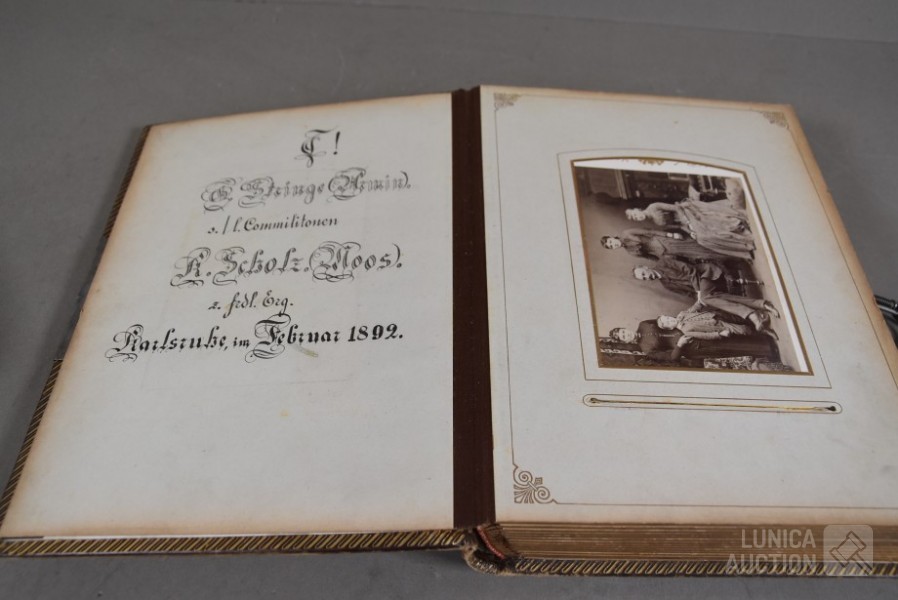 F!
G. Stringe (Armin).
s./l. Commilitonen
K. Scholz. (Moos).
z. frdl. Erg.
Karlsruhe, im Februar 1892.
LUNICA
AUCTION